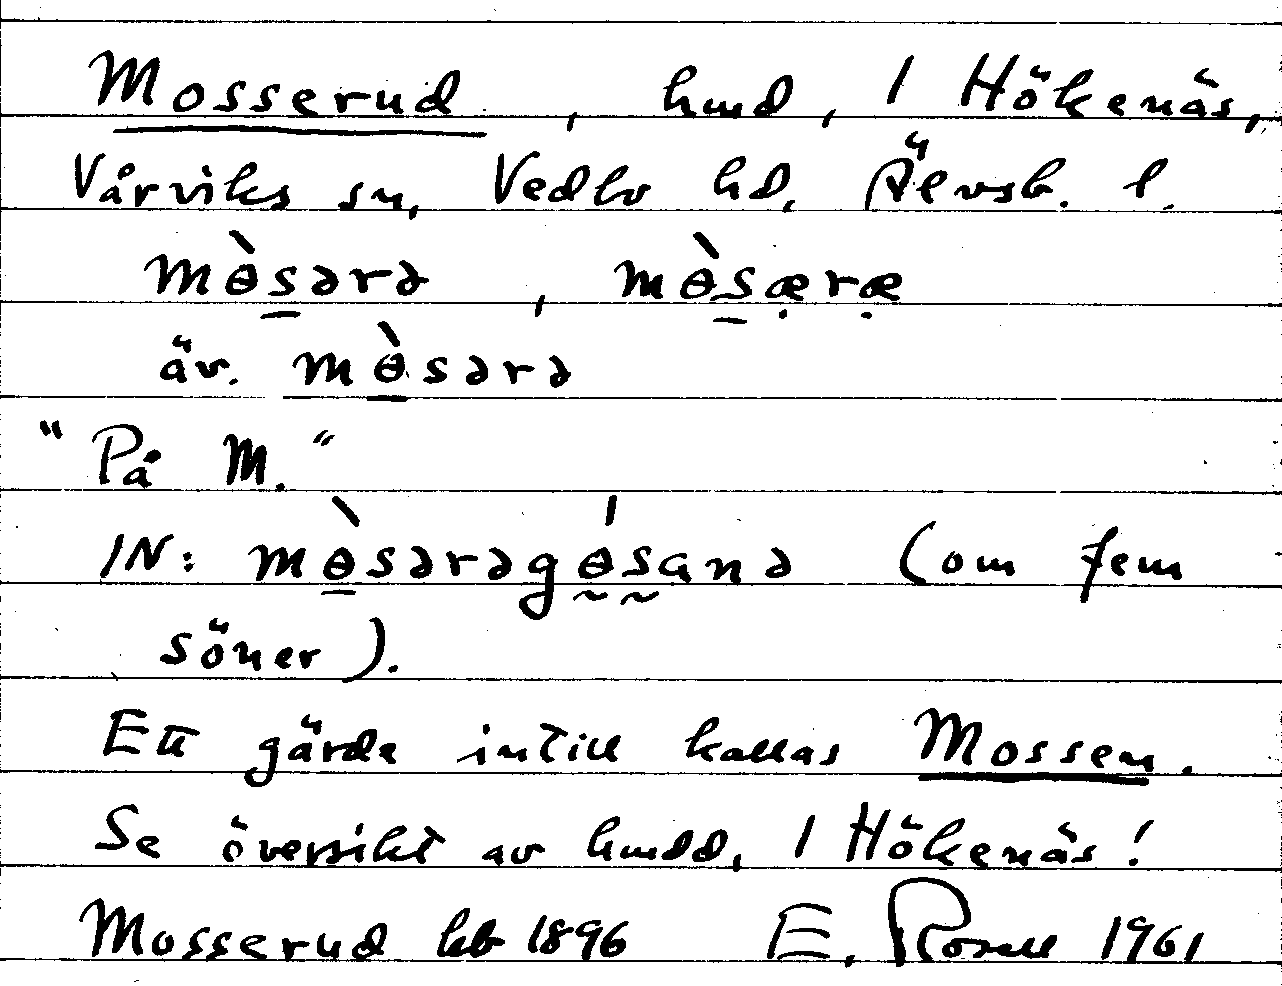 Mosserud, hmd, 1 Hökenäs,
Vårviks sn, Vedbo hd, Älvsb. l.
mɵ̀sərə, mɵ̀særæ
äv. mɵ̀sərə
"På M."
IN: mɵ̀sərəgɵ́sanə (om fem
söner).
Ett gärde intill kallas Mossen.
Se översikt av hmdd, 1 Hökenäs!
Mosserud kb 1896 E. Rosell 1961